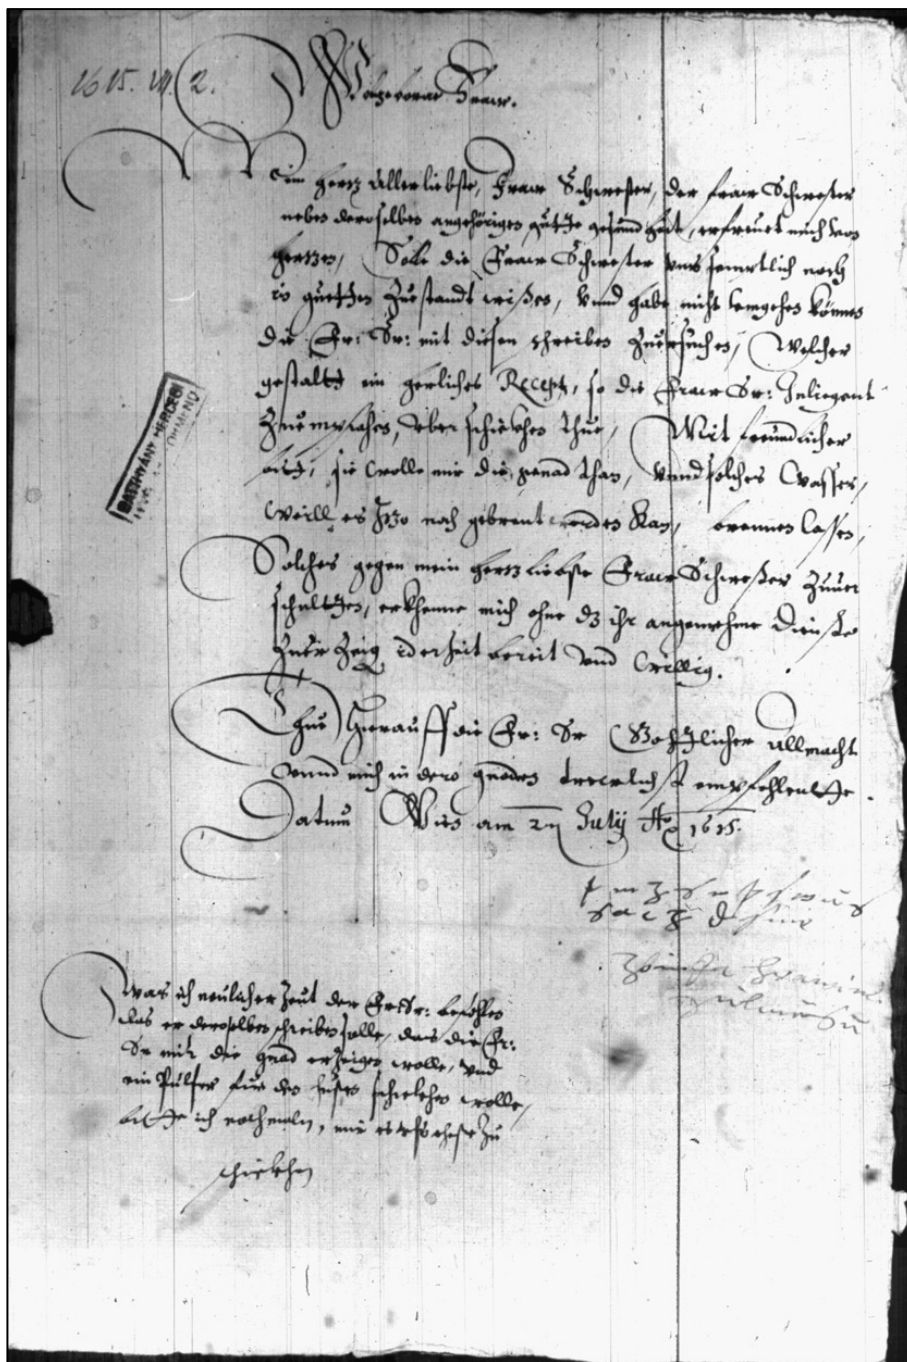 1615. VII. 2.
Wolgeborne Fraw.
Mein hertz allerliebste, Fraw Schwester, der fraw Schwester
neben deroselben angehörigen guthe gesundtheit, erfreuet mich von
hertzen, Solle die Fraw Schwester vns semmtlich noch
in guethen Zuestandt wissen, Vnnd habe nicht können
die Fr: Sr: mit diesen schreiben Zuersuchen, Welcher
gestaldt ein herliches Recept, so die Fraw Sr: Inliegent
Zuempfahen, vberschickhen thue, Mit freündtlicher
bitt, sie wolle mir die genad than, Vnnd solches Wasser,
Weill es Izo noch gebrent werden Kan, brennen lassen,
Solches gegen mein hertzliebste Fraw Schwester Zuuer
schulthen, erkhenne mich ohne dz ihr angenemhme dienste
Zuer Zeig iderheit bereit Vnd Willig.
Thue hierauff die Fr: Sr Göthlicher Allmacht
Vnnd mich in dero gnaden trewlichst empfehlenthe.
Datum am July Ao 1615.
Was ich neulicher Zeut der befohlen
das er deroselben schreiben solle, das die Fr:
Sr mir die gnad erZeigen wolle, Vnd
ein Pulfer für den husten schickhen wolle,
bitthe ich nochmaln, mir es Zu
schickhen
BATTHYÁNY HERCEGI
KÖRMEND